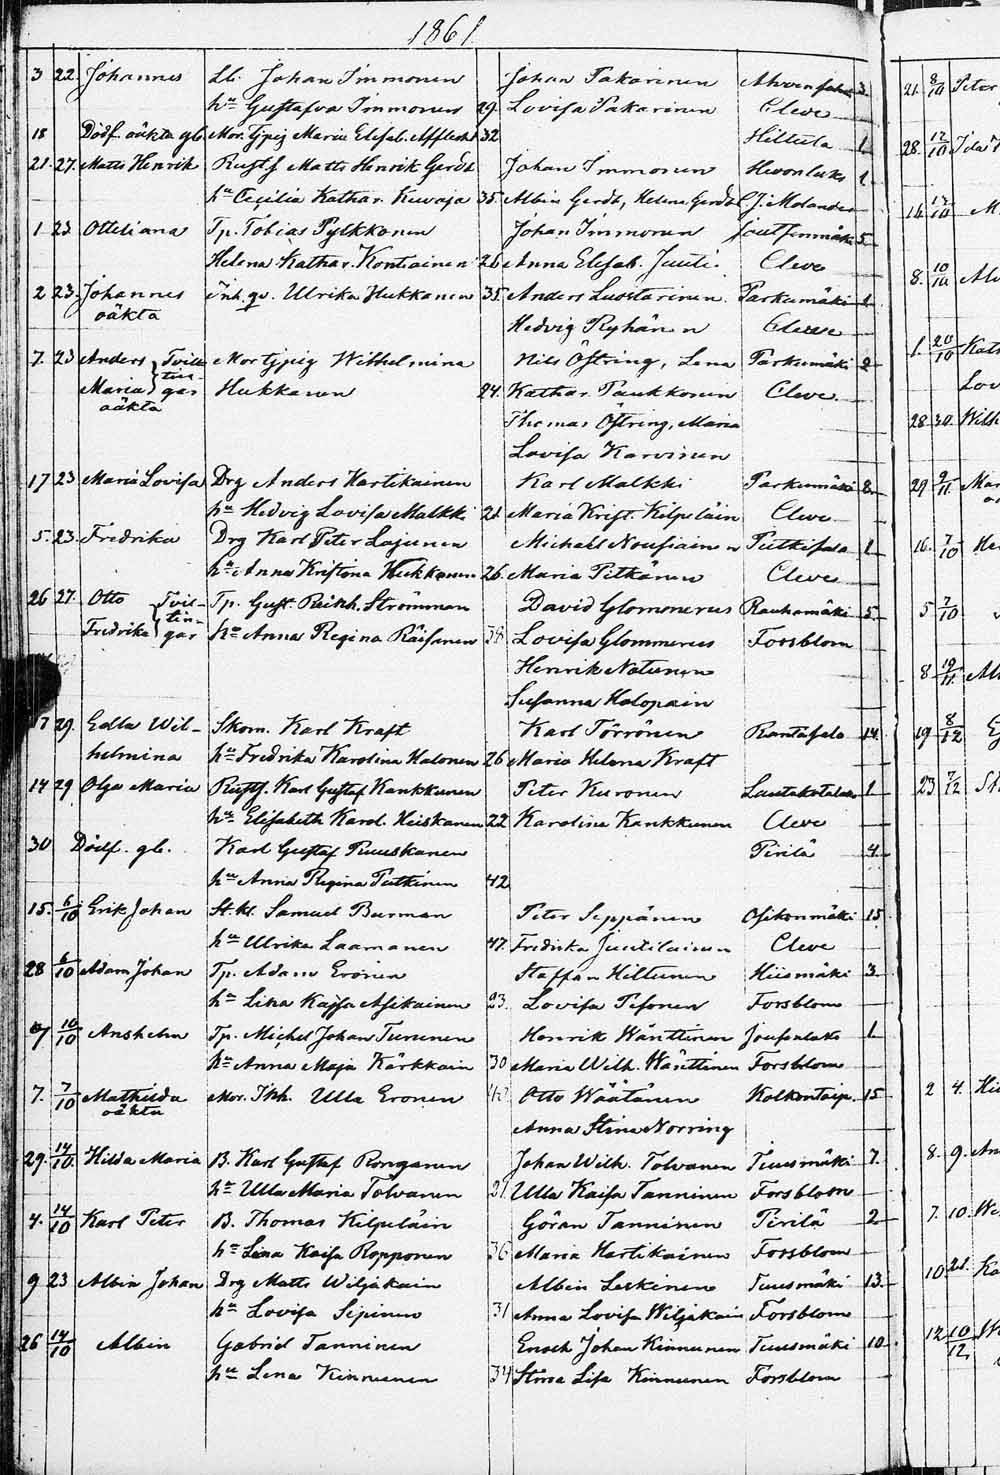 1861
3 22 Johannes Lb. Johan Immonen Johan Pakarinen
hu Gustafva Immonen 29. Lovisa Pakarinen Cleve
18 Dödf. oäkta gb. Maria Elisab. 32 Hiltula 1
21. 27. Matts Henrik Rustf Matts Henrik Gerdt Johan Immonen 1
hu Cecilia Kathar. 35. Albin Gerdt, Helena Gerdt C. J. Molander
1 23 Otteliana Tp. Tobias Pylkkönen Johan Immonen 5
Helena Kathar. Kontiainen 26 Anna Elisab. Juuti. Cleve
2 23. Johannes Inh. qv. Ulrika Hukkanen 35. Anders Luostarinen. Parkumäki 1
oäkta Hedvig Ryhänen Cleve
7. 23 Anders Tvil- Mor tjpig Wilhelmina Nils Östring, Lena Parkumäki 2
Maria tin-gar Hukkanen 24. Kathar. Paukkonen Cleve
oäkta Thomas Östring, Maria
Lovisa Karvinen
17 23 Maria Lovisa Drg Anders Hartikainen Karl Malkki Parkumäki 8
hu Hedvig Lovisa Malkki 21 Maria Krist. Kilpeläin Cleve
5. 23. Fredrika Drg Karl Peter Lajunen Michael Nousiainen Putkisalo 1
hu Anna Kristina Hukkanen 26. Maria Pitkänen Cleve
26 27. Otto Tvil- Tp. Gust. Strömman David Glomonerus Rauhamäki 5
Fredrika tin-gar hu Anna Regina Räisänen 38 Lovisa Glommerus Forsblom
Henrik Natunen
Susanna Halopain
17 29. Edla Wil- Skom. Karl Kraft Karl Törrönen Rantasalo 14
helmina hu Fredrika Karolina Halonen 26 Maria Helena Kraft
14 29 Olga Maria Rustf. Karl Gustaf Kankkunen Peter Kuronen 1
hu Elisabeth Karol. Heiskanen 22 Karolina Kankkunen Cleve
30 Dödf. gb. Karl Gustaf Puuskanen Pirilä 4
hu Anna Regina Putkinen 42
15. 6/10 Erik Johan Samuel Burman Peter Seppänen Osikonmäki 15
hu Ulrika Laamanen 47. Fredrika Juutilainen Cleve
28 6/10 Adam Johan Tp. Adam Eronen Staffan Hiltunen Hiismäki 3
hu Lina Kajsa Asikainen 23. Lovisa Pesonen Forsblom
7 10/10 Anshelm Tp. Michel Johan Turunen Henrik Wänttinen 1
hu Anna Maja Kärkkäin 30 Maria Wilh. Wänttinen Forsblom
7. 7/10 Mathilda Mor. Inh. Ulla Eronen 40 Otto Wäätänen 15
oäkta Anna Stina Norring
29. 14/10. Hilda Maria B. Karl Gustaf Ronganen Johan Wilh. Tolvanen Tuusmäki 7.
hu Ulla Maria Tolvanen 21. Ulla Kaisa Tanninen Forsblom
4. 14/10 Karl Peter B. Thomas Kilpeläin Göran Tanninen Pirilä 2
hu Lina Kaisa Ropponen 36 Maria Hartikainen Forsblom
9 23 Albin Johan Drg Matts Wiljakain Albin Leskinen Tuusmäki 13.
hu Lovisa Sipinen 31 Anna Lovisa Wiljakain Forsblom
26 14/10 Albin Gabriel Tanninen Enoch Johan Kinnunen Tuusmäki 10
hu Lena Kinnunen 34 Lisa Kinnunen Forsblom
21. 8/10 Peter
28. 12/10
14. 12/10
8. 10/10
1. 20/10
28 30. Wilh
29 9/11
16. 7/10
5 7/10
8 10/11
19 8/12
23 7/12
2 4.
8. 9.
7. 10.
10 21.
12 10/12